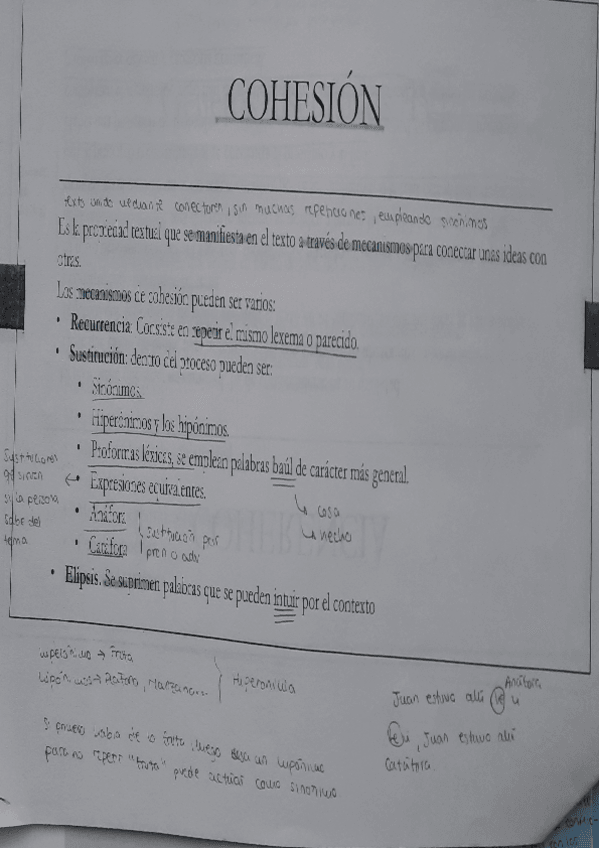 COHESIÓN
texto unido mediante conectores, sin muchas repeticiones, empleando sinónimos
Es la propiedad textual que se manifiesta en el texto a través de mecanismos para conectar unas ideas con
otras.
Los mecanismos de cohesión pueden ser varios:
• Recurrencia: Consiste en repetir el mismo lexema o parecido.
• Sustitución: dentro del proceso pueden ser:
• Sinónimos.
• Hiperónimos y los hipónimos.
• Proformas léxicas, se emplean palabras baúl de carácter más general.
• Expresiones equivalentes.
• Anáfora
• Catáfora
Sustituciones
si la persona
sabe del
tema
sustitución por
pron o adv
↳ cosa
↳ hecho
• Elipsis. Se suprimen palabras que se pueden intuir por el contexto
hiperónimo → fruta
hipónimos → plátano, manzana...
Hiperonimia
Si primero habla de la fruta, luego usa un hipónimo
para no repetir "fruta" puede actuar como sinónimo.
Anáfora
Juan estuvo allí
, Juan estuvo allí
Catáfora.